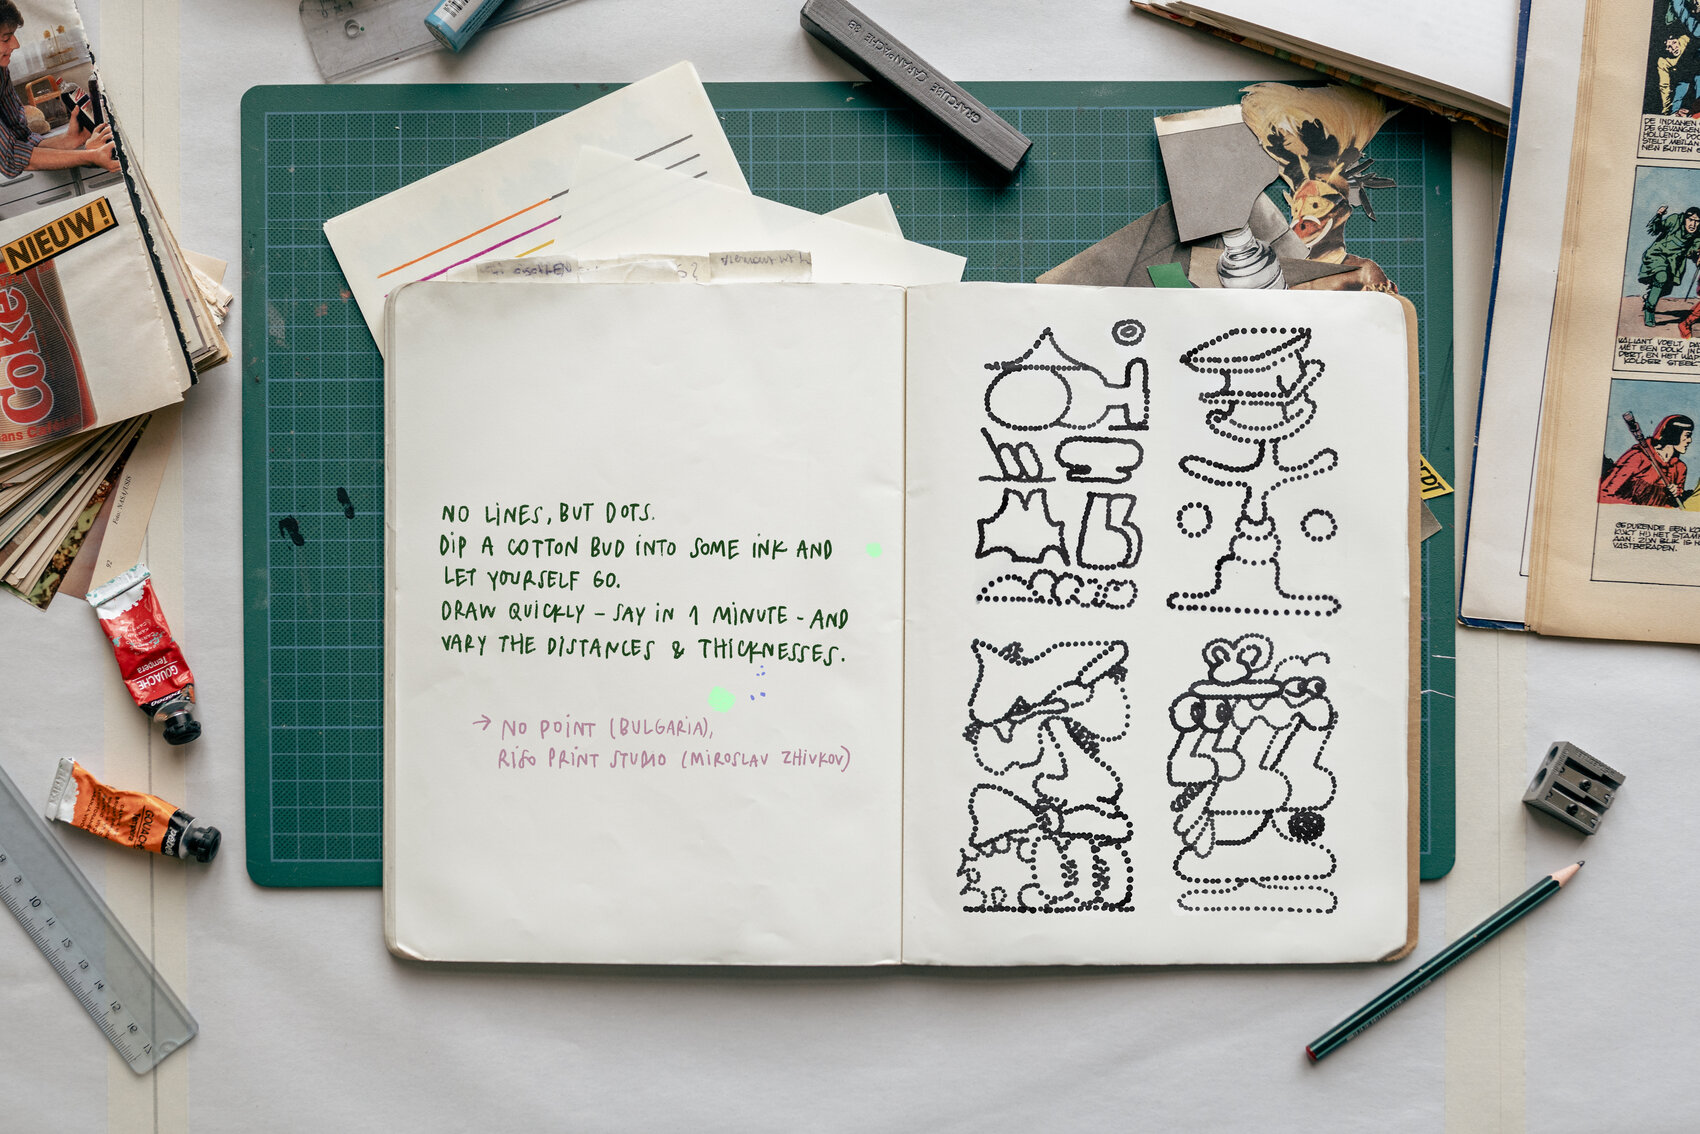 NIEUW!
Coke
GOUACHE
Tempera
GOUACHE
GRAFCUBE CARAN D'ACHE 3B
NO LINES, BUT DOTS.
DIP A COTTON BUD INTO SOME INK AND
LET YOURSELF GO.
DRAW QUICKLY – SAY IN 1 MINUTE – AND
VARY THE DISTANCES & THICKNESSES.
→ NO POINT (BULGARIA),
RISO PRINT STUDIO (MIROSLAV ZHIVKOV)
8
9
10
11
12
13
14
15
16
17
DE INDIANEN
DE GEVANGEN
HOLLEND, DOO
STELT MEILAN
NEN BUITEN
VALIANT VOELT, DA
MET EEN DOLK IN
DERT, EN HET WAP
KOLDER STEEK
GEDURENDE EEN KO
KIJKT HIJ HET STAM
AAN: ZIJN BLIK IS
VASTBERADEN.